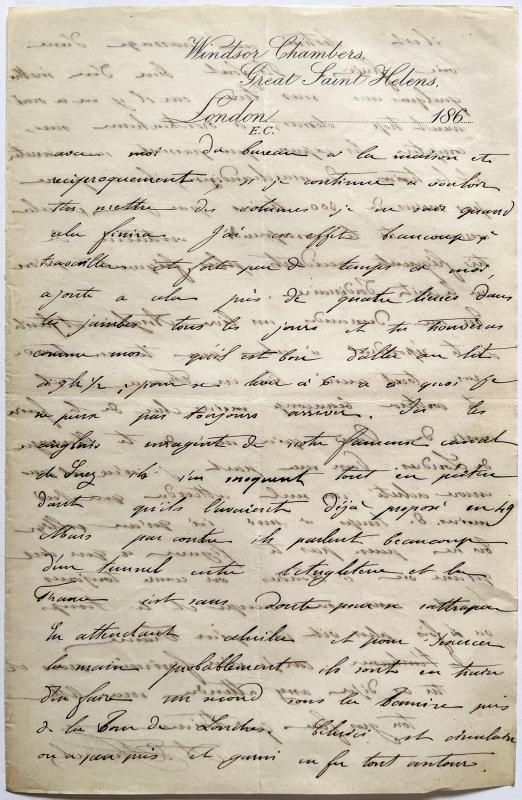 Windsor Chambers,
Great Saint Helens,
London 186
E.C.
avec moi du bureau à la maison et
réciproquement; si je continue à vouloir
t'en mettre des volumes je ne sais quand
cela finira. J'ai en effet beaucoup à
travailler et forte peu de temps à moi,
ajoute à cela près de quatre lieues dans
les jambes tous les jours et tu trouveras
comme moi qu'il est bon d'aller au lit
à 9h½, pour se lever à 6 à quoi je
ne puis pas toujours arriver. Ici les
anglais enragent de notre fameux canal
de Suez et ils s'en moquent tout en
dant qu'ils l'avaient déjà proposé en 49
Mais par contre ils parlent beaucoup
d'un tunnel entre l'Angleterre et la
France est sans doute pour se rattraper
En attendant celui-là et pour s'exercer
la main probablement ils sont en train
d'en faire un second sous la Tamise près
de la Tour de Londres. Celui-ci est circulaire
ou à peu près et garni en fer tout autour.